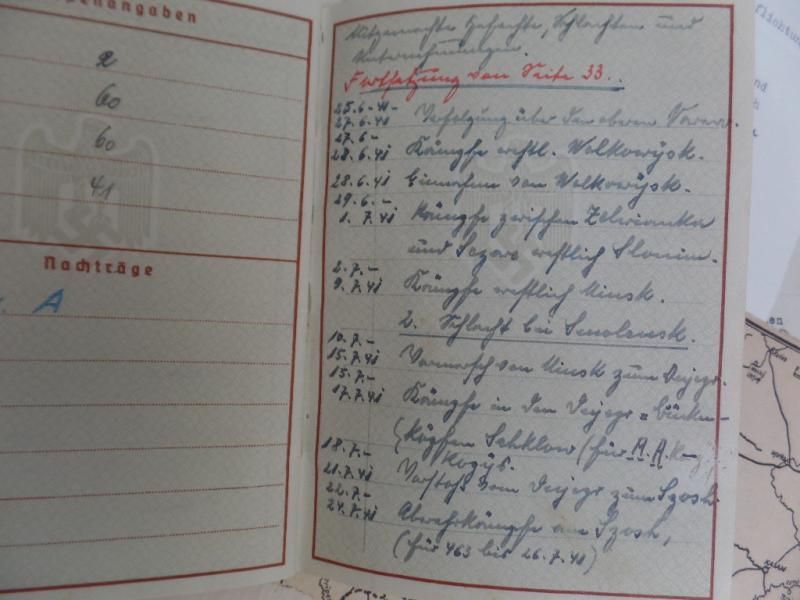 penangaben
2
60
60
41
Nachträge
A
Mitgemachte Gefechte, Schlachten und
Unternehmungen.
Fortsetzung von Seite 33.
25.6-41-
27.6.41 Verfolgung über den oberen Narew.
27.6-
28.6.41 Kämpfe westl. Wolkowysk.
28.6.41 Einnahme von Wolkowysk.
29.6.-
1.7.41 Kämpfe zwischen Zelwianka
und Sczara westlich Slonim.
2.7.-
9.7.41 Kämpfe westlich Minsk.
2. Schlacht bei Smolensk.
10.7.-
15.7.41 Vormarsch von Minsk zum Dnjepr.
15.7.-
17.7.41 Kämpfe in den Dnjepr = Brücken-
köpfen Schklow (für M.A.K-
Kopys.
18.7.-
21.7.41 Vorstoß vom Dnjepr zum Szosh
22.7.-
24.7.41 Abwehrkämpfe am Szosh,
(für 463 bis 26.7.41)
flichtun
nd
en